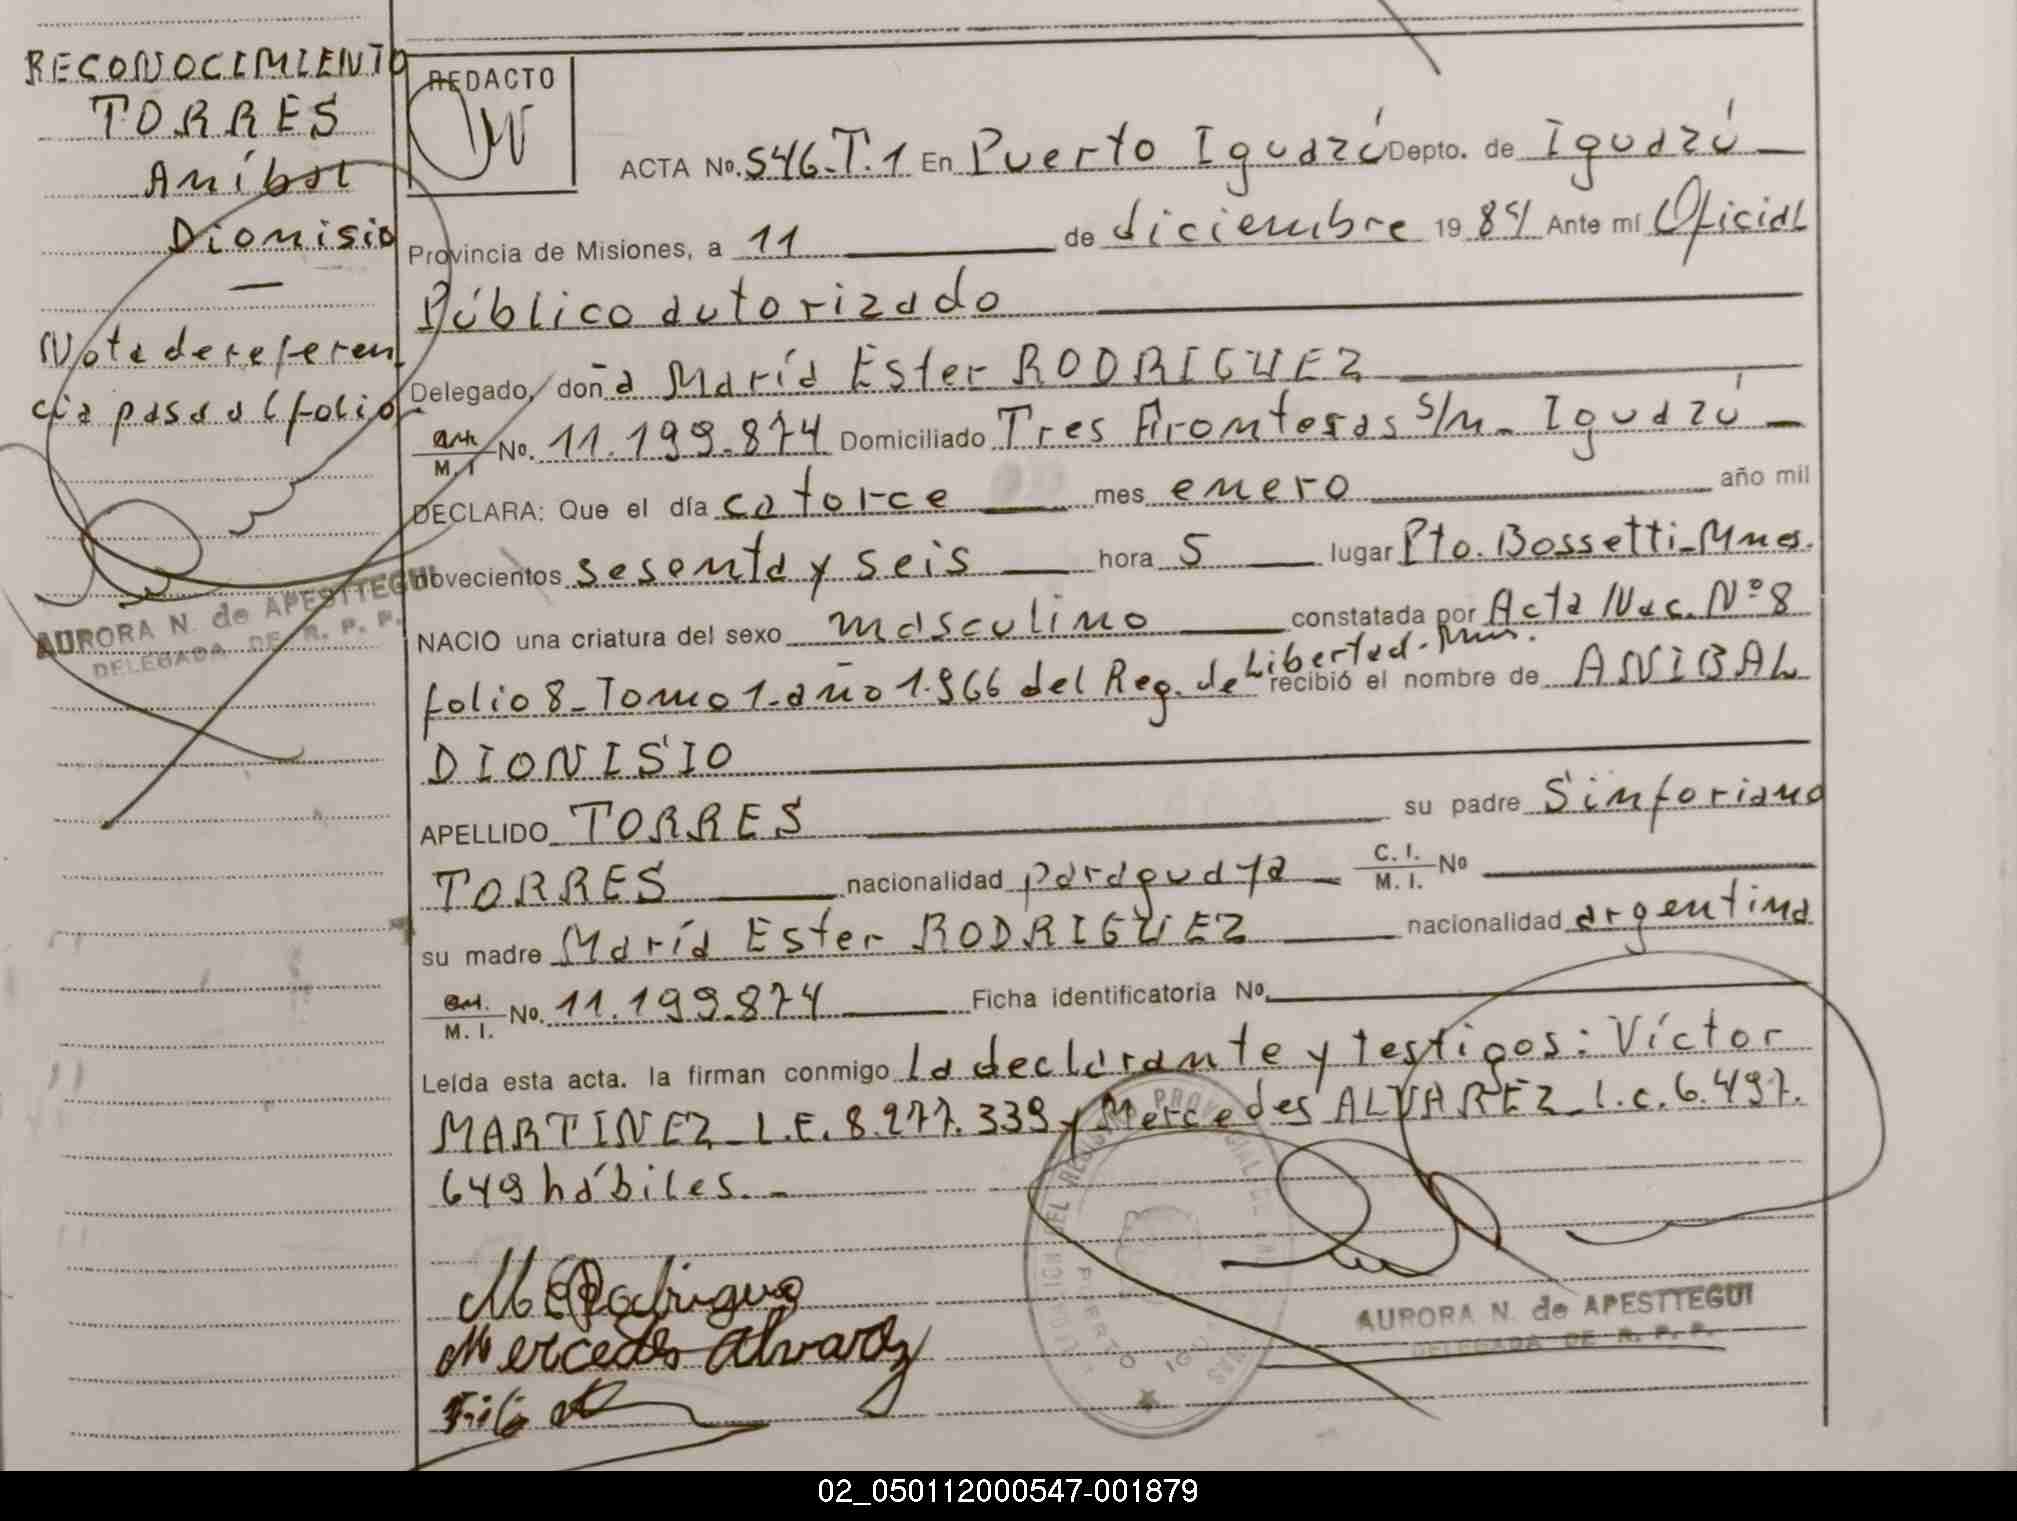 RECONOCIMIENTO
TORRES
Aníbal
Dionisio
—
Nota de referen
cia pasa al folio
AURORA N. de APESTTEGUI
DELEGADA DE R. P. P.
REDACTO
ACTA No. 546-T.1 En Puerto Iguazú Depto. de Iguazú
Provincia de Misiones, a 11 de diciembre 1984 Ante mí Oficial
Público autorizado
Delegado, doña María Ester RODRIGUEZ
M. I. No. 11.199.874 Domiciliado Tres Fronteras s/n - Iguazú
DECLARA: Que el día catorce mes enero año mil
novecientos sesenta y seis hora 5 lugar Pto. Bossetti-Mnes.
NACIO una criatura del sexo masculino constatada por Acta Nac. Nº 8
folio 8 - Tomo 1 - año 1.966 del Reg. de Libertad - Mnes. recibió el nombre de ANIBAL
DIONISIO
APELLIDO TORRES su padre Sinforiano
TORRES nacionalidad paraguaya C. I. M. I. No
su madre María Ester RODRIGUEZ nacionalidad argentina
M. I. No. 11.199.874 Ficha identificatoria No.
Leída esta acta. la firman conmigo la declarante y testigos: Víctor
MARTINEZ - L.E. 8.277.339 y Mercedes ALVAREZ - l.c. 6.497.
649 hábiles. -
M E Rodriguez
Mercedes Alvarez
AURORA N. de APESTTEGUI
DELEGADA DE R. P. P.
02_050112000547-001879